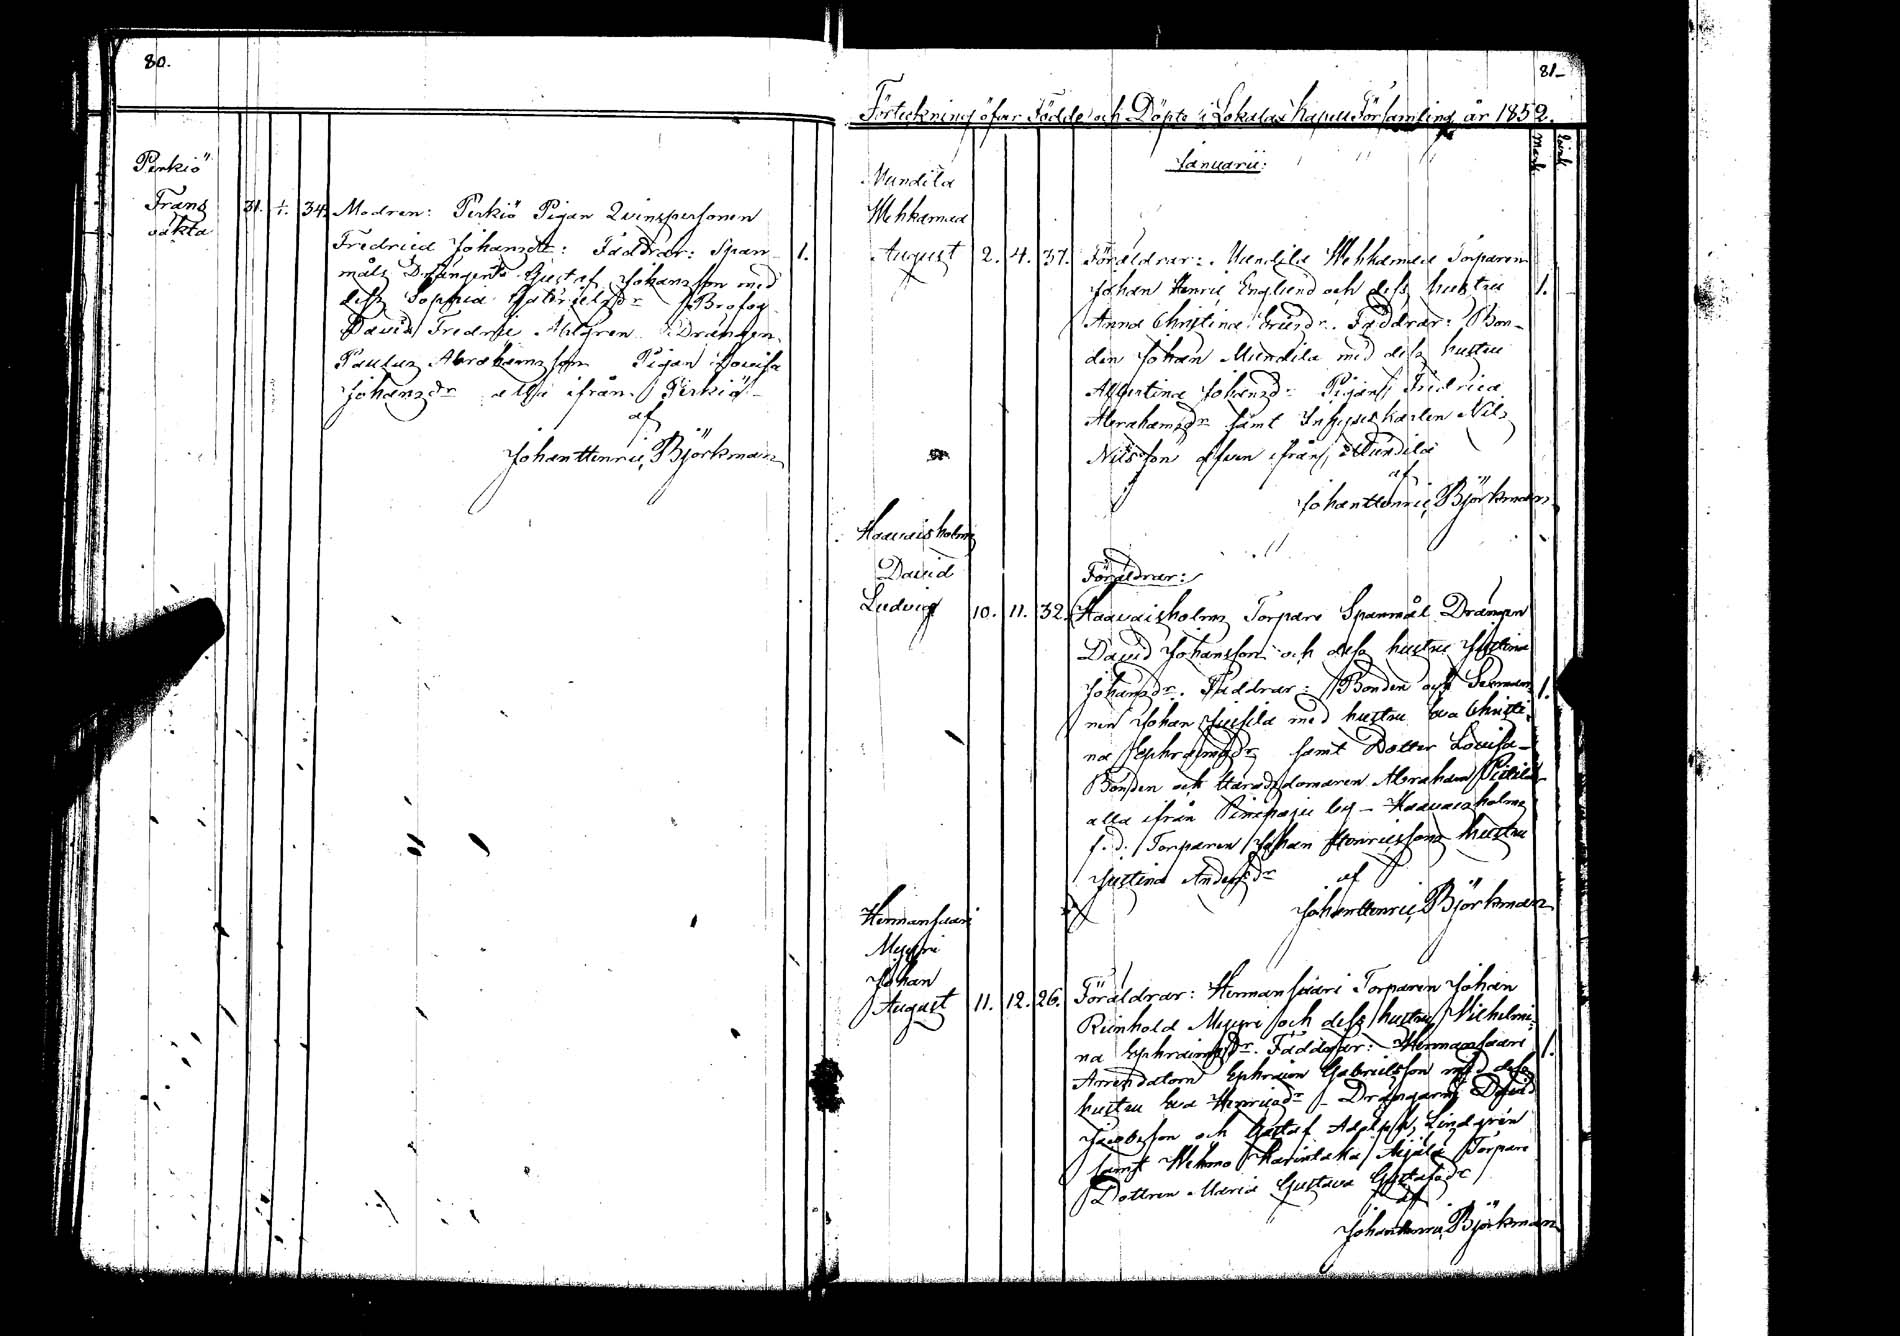 80.
Perkiö
Frans
oäkta
31. 1/1. 34. Modren: Perkiö Pigan Qvinspersonen
Fredrica Johansdr: Faddrar: Span- 1.
måls Drängen Gustaf Johansson med
dess Sophia Gabrielsdr
David Fredric Ahlgren Drängen
Paulus Abrahamsson Pigan Lovisa
Johansdr alla ifrån Perkiö
af
Johan Henric Björkman
81
Förteckning öfver Födde och Döpte i Lokalax Kapell Församling år 1852.
Januarii:
Mundila
Wehkamaa
August 2. 4. 37. Föräldrar: Mundila Wehkamaa Torparen
Johan Henric Englund och dess hustru 1.
Anna Christina Ericsdr. Faddrar: Bon-
den Johan Mundila med dess hustru
Albertina Johansdr Pigan Fredrica
Abrahamsdr samt Inhyseskarlen Nils
Nilsson äfven ifrån Mundila
af
Johan Henric Björkman
Haavaisholm
David
Ludvig 10. 11. 32.
Föräldrar:
Haavaisholm Torpare Spanmål Drängen
David Johansson och dess hustru Justina
Johansdr. Faddrar: Bonden och 1.
nen Johan med hustru Eva Christi-
na Ephraimsdr samt Dotter Lovisa
Bonden och Häradsdomaren Abraham
alla ifrån by - Haavaisholm
f.d. Torparen Johan Henricssons hustru
Justina Andersdr af
Johan Henric Björkman
Hermansaari
Myyri
Johan
August 11. 12. 26. Föräldrar: Hermansaari Torparen Johan
Reinhold Myyri och dess hustru Vilhelmi-
na Ephraimsdr. Faddrar: Hermansaari 1.
Arrendatorn Ephraim Gabrielsson med dess
hustru Eva Henricsdr - Drängarne David
Jacobsson och Gustaf Adolph Lindgrén
samt Wehmo Torpare
Dottren Maria Gustava Gustafsdr
af
Johan Henric Björkman